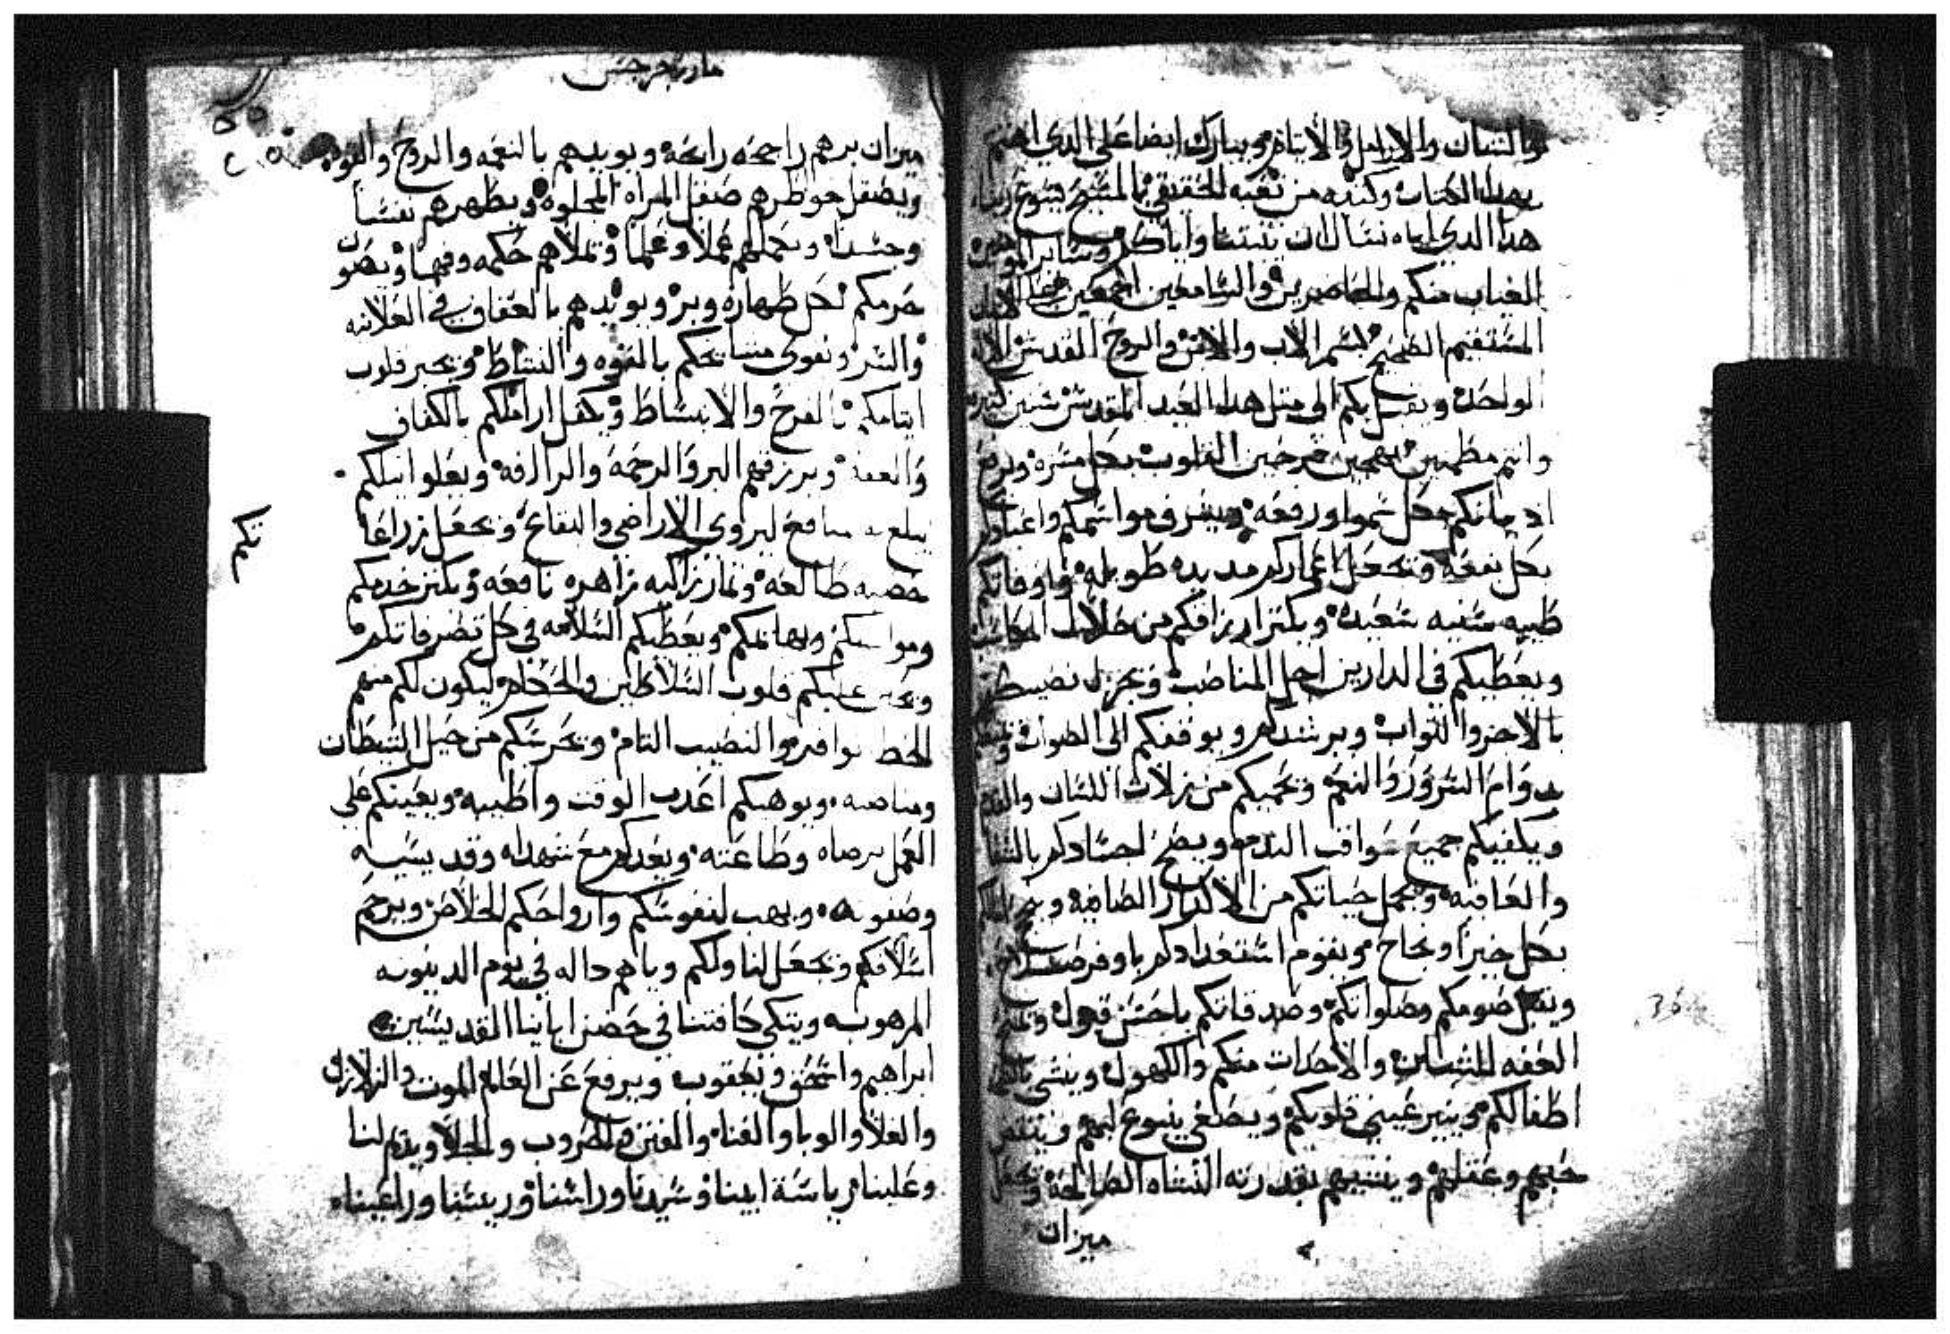 والشبان والارامل والايتام ويبارك ايضا على الذي اهتم
بهذا الكتاب وكتبه من تعبه الحقيقي بالمسيح يسوع ربنا
هذا الذي اياه نسال ان يثبتنا واياكم وسائر المومنين
الغياب منكم والحاضرين والسامعين اجمعين
المستقيم الصحيح باسم الاب والابن والروح القدس الاله
الواحد بكم الى مثل هذا العيد المقدس سنين كثيره
وانتم مطمنين فرحين القلوب بكل مسره ويرفع
بكل سموا ورفعه مواسمكم واعيادكم
بكل نعمه ويجعل اعماركم مديده طويله واوقاتكم
طيبه سنيه سعيده ويكثر ارزاقكم من حلال المكاسب
ويعطيكم في الدارين اجمل المناصب ويجزل
بالاجر والثواب ويرشدكم ويوفقكم الى الصواب
بدوام السرور والنعم ويحميكم من زلات اللسان
ويكفيكم جميع عواقب الندم ويصح اجسادكم بالشفا
والعافيه حياتكم من الاكدار الصافيه
بكل خيرا ونجاح ويقوم استعدادكم باوفر صلاح
ويقبل صومكم وصلواتكم وصدقاتكم باحسن قبول
العفه للشباب والاحداث منكم والكهول
اطفالكم وينير عينى قلوبكم ينبوع لبهم
وعقلهم بقدرته النشاه الصالحه ويجعل
ميزان
مار جرجس
ميزان برهم راجحه رابحه ويويدهم بالنعمه والروح والقوه
ويصقل خواطرهم صقل المراه المجلوه ويطهرهم نفسا
وجسدا ويجملهم عملا وعلما ويملاهم حكمه وفهما ويصون
حرمكم بكل طهاره وبر ويويدهم بالعفاف في العلانيه
والسر ويقوى مشايخكم بالقوه والنشاط ويجبر قلوب
ايتامكم بالفرح والانبساط ويكفل اراملكم بالكفاف
والعفه ويرزقهم البر والرحمه والرافه ويعلوا نيلكم
ليروي الاراضي والبقاع ويجعل زراعا
تكم
خصبه طالعه وثمار زاكيه زاهره نافعه ويكثر خدمكم
ومواشيكم وبهائمكم ويعطيكم السلامه في كل تصرفاتكم
عليكم قلوب السلاطين والحكام ليكون لكم منهم
الحظ الوافر والنصيب التام ويحرسكم من حيل الشيطان
ومناصبه ويوهبكم اعذب الوقت واطيبه ويعينكم على
العمل برضاه وطاعته ويعدكم مع شهداه وقديسيه
وصفوته ويهب لنفوسكم وارواحكم الخلاص ويرحم
اسلافكم ويجعل لنا ولكم وياهم داله في يوم الدينونه
المرهوبه ويتكي كافتنا في حضن ابايناا القديسين
ابراهيم واسحق ويعقوب ويرفع عن العالم الموت والزلازل
والغلا والوبا والفنا والفتن والحروب والجلا ويديم لنا
وعلينا رياسة ابينا وسيدنا وراسنا وريسنا وراعينا